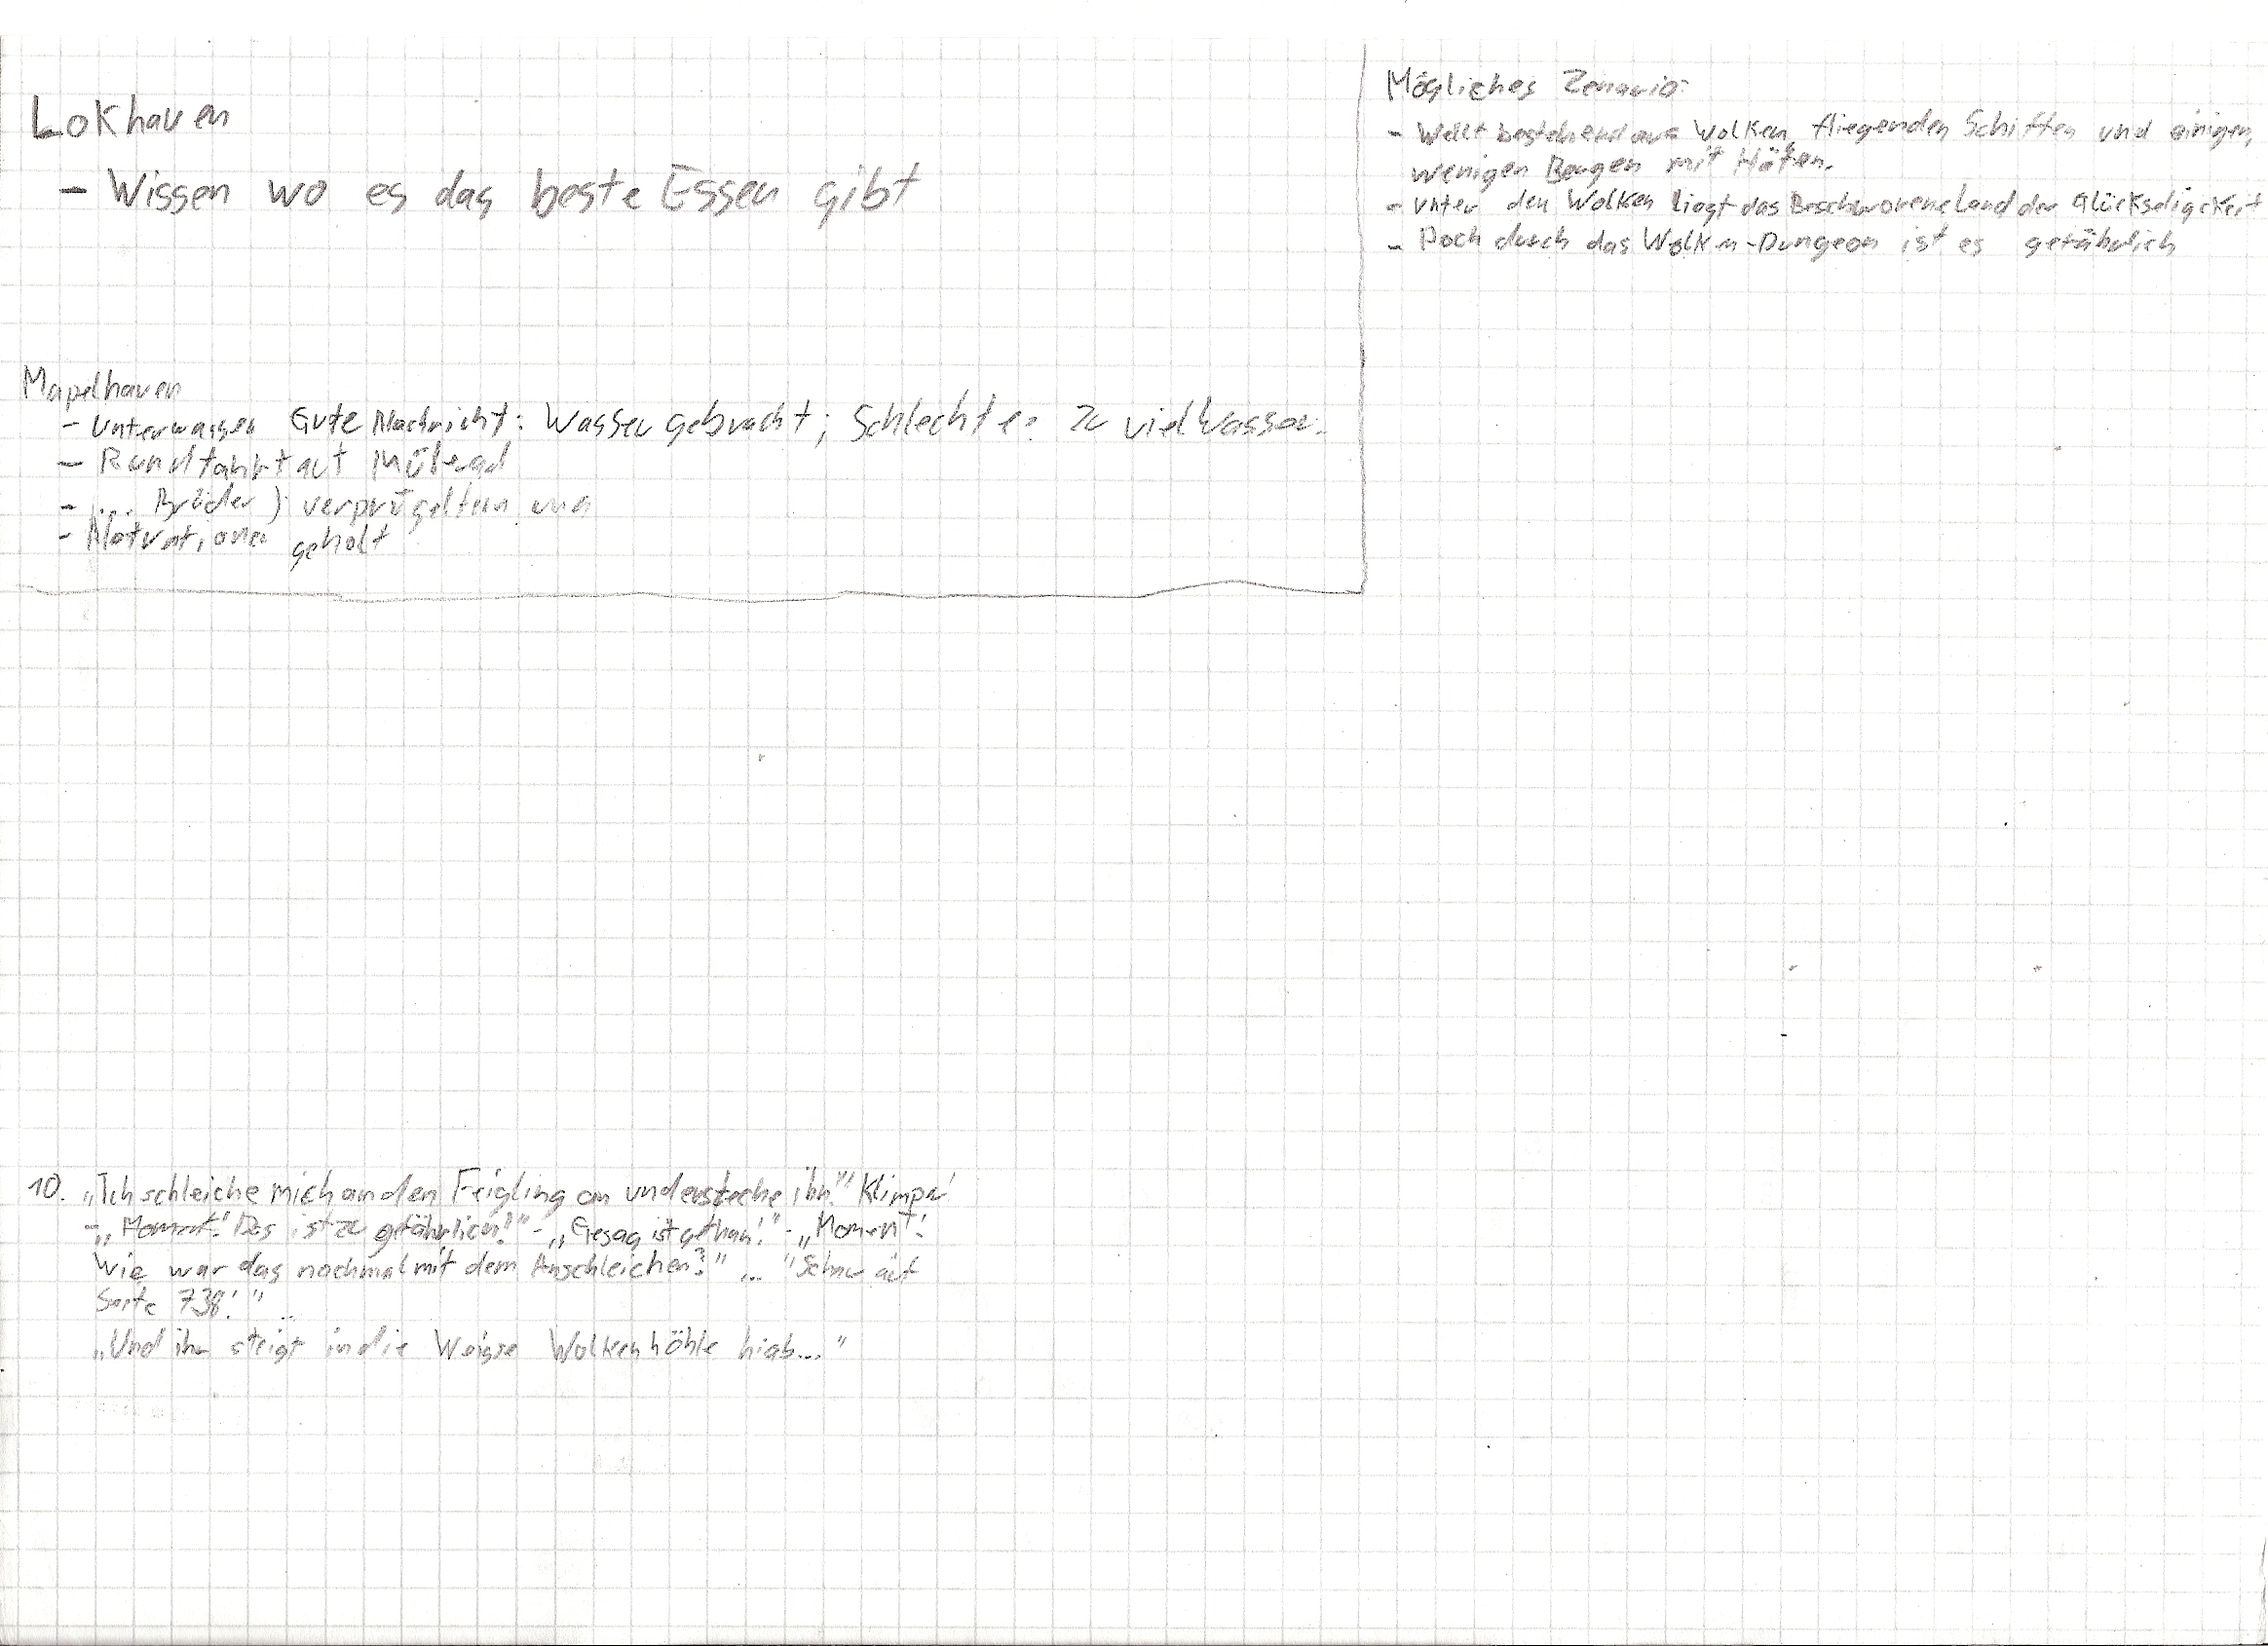 Lokhaven
- Wissen wo es das beste Essen gibt
Mapelhaven
- Unterwasser Gute Nachricht: Wasser gebracht; Schlechte: Zu viel Wasser.
- Rundfahrt auf Mülrad
- ... Brüder } verprügelten uns
- Motivationen geholt
Mögliches Zenario:
- Wellt bestehend aus Wolken, fliegenden Schiffen und einigen,
wenigen Bergen mit Häfen.
- Unter den Wolken liegt das Beschworene Land der Glückseligckeit
- Doch durch das Wolken-Dungeon ist es gefährlich
10. „Ich schleiche mich an den Feigling an und ersteche ihn!" Klimper!
- „Moment! Das ist zu gefährlich!" - „Gesag ist gethan!" - „Moment!
Wie war das nochmal mit dem Anschleichen?" ... "Schau auf
Seite 738!" ...
„Und ihr steigt in die Weisse Wolkenhöhle hiab..."